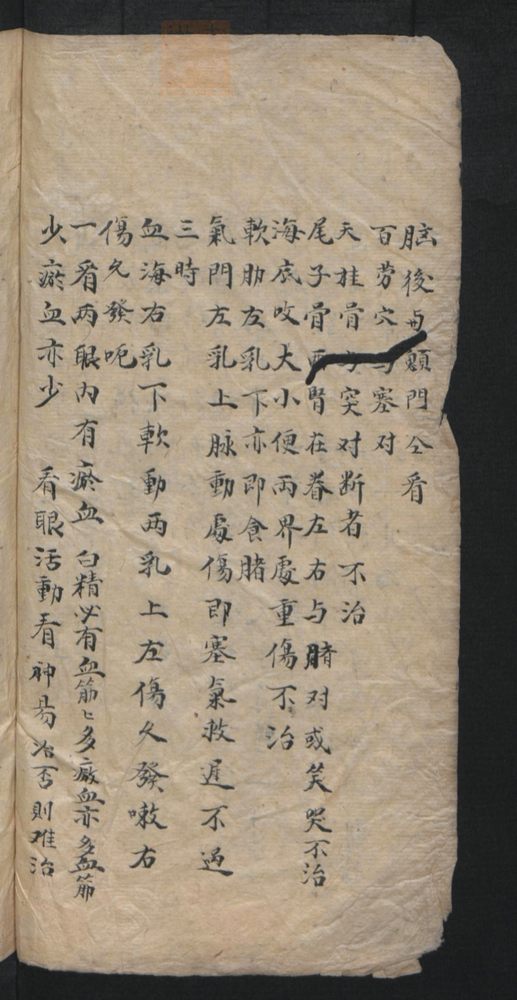 脳後与顖門仝看
百劳穴与塞对
天桂骨与突对断者不治
尾子骨両腎在眷左右与腈对或笑哭不治
海底咬大小便両界處重傷不治
軟肋左乳下亦即食腈
氣門左乳上脉動處傷即塞氣救遅不过
三時
血海右乳下軟動両乳上左傷久發嗽右
傷久發呃
一看両眼内有瘀血白精必有血筋〻多瘀血亦多血筋
少瘀血亦少 看眼活動看神易治否則难治